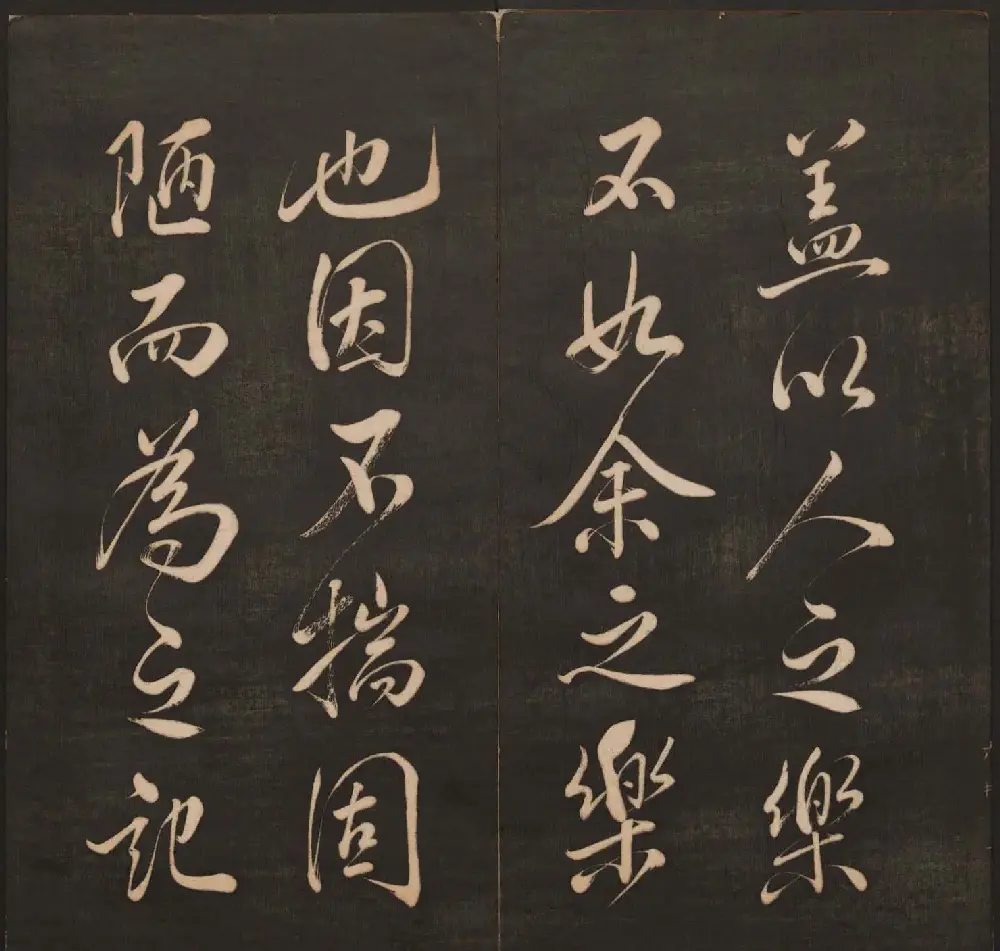 盖以人之樂
不如余之樂
也因不揣固
陋而為之記